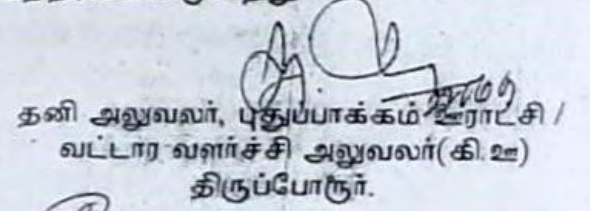 தனி அலுவலர், புதுப்பாக்கம் ஊராட்சி /
வட்டார வளர்ச்சி அலுவலர்(கி.ஊ)
திருப்போரூர்.